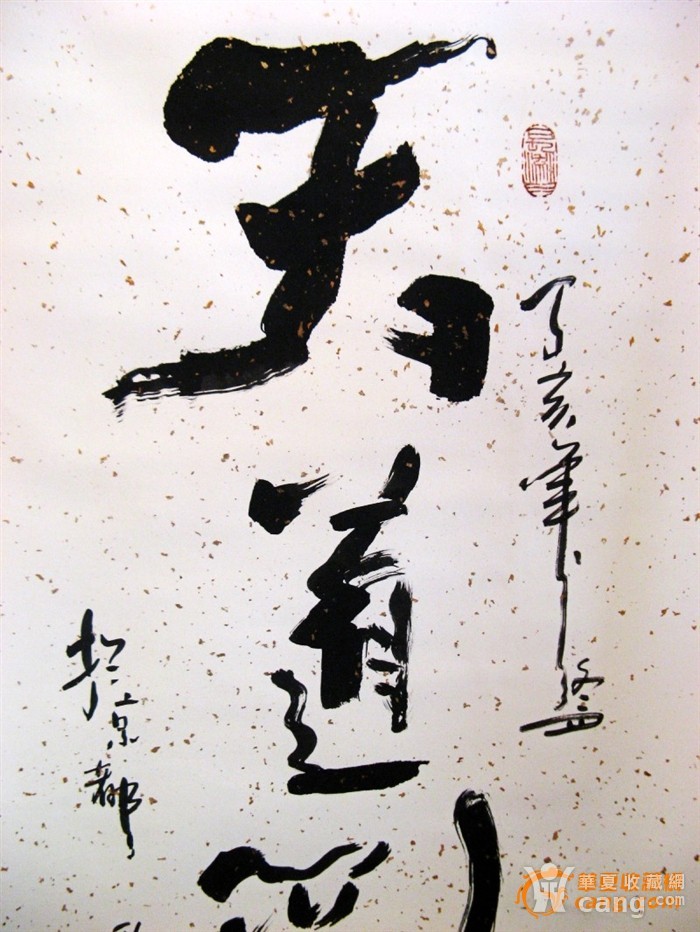 丁亥年
天道
於京都
華夏收藏網
cang.com